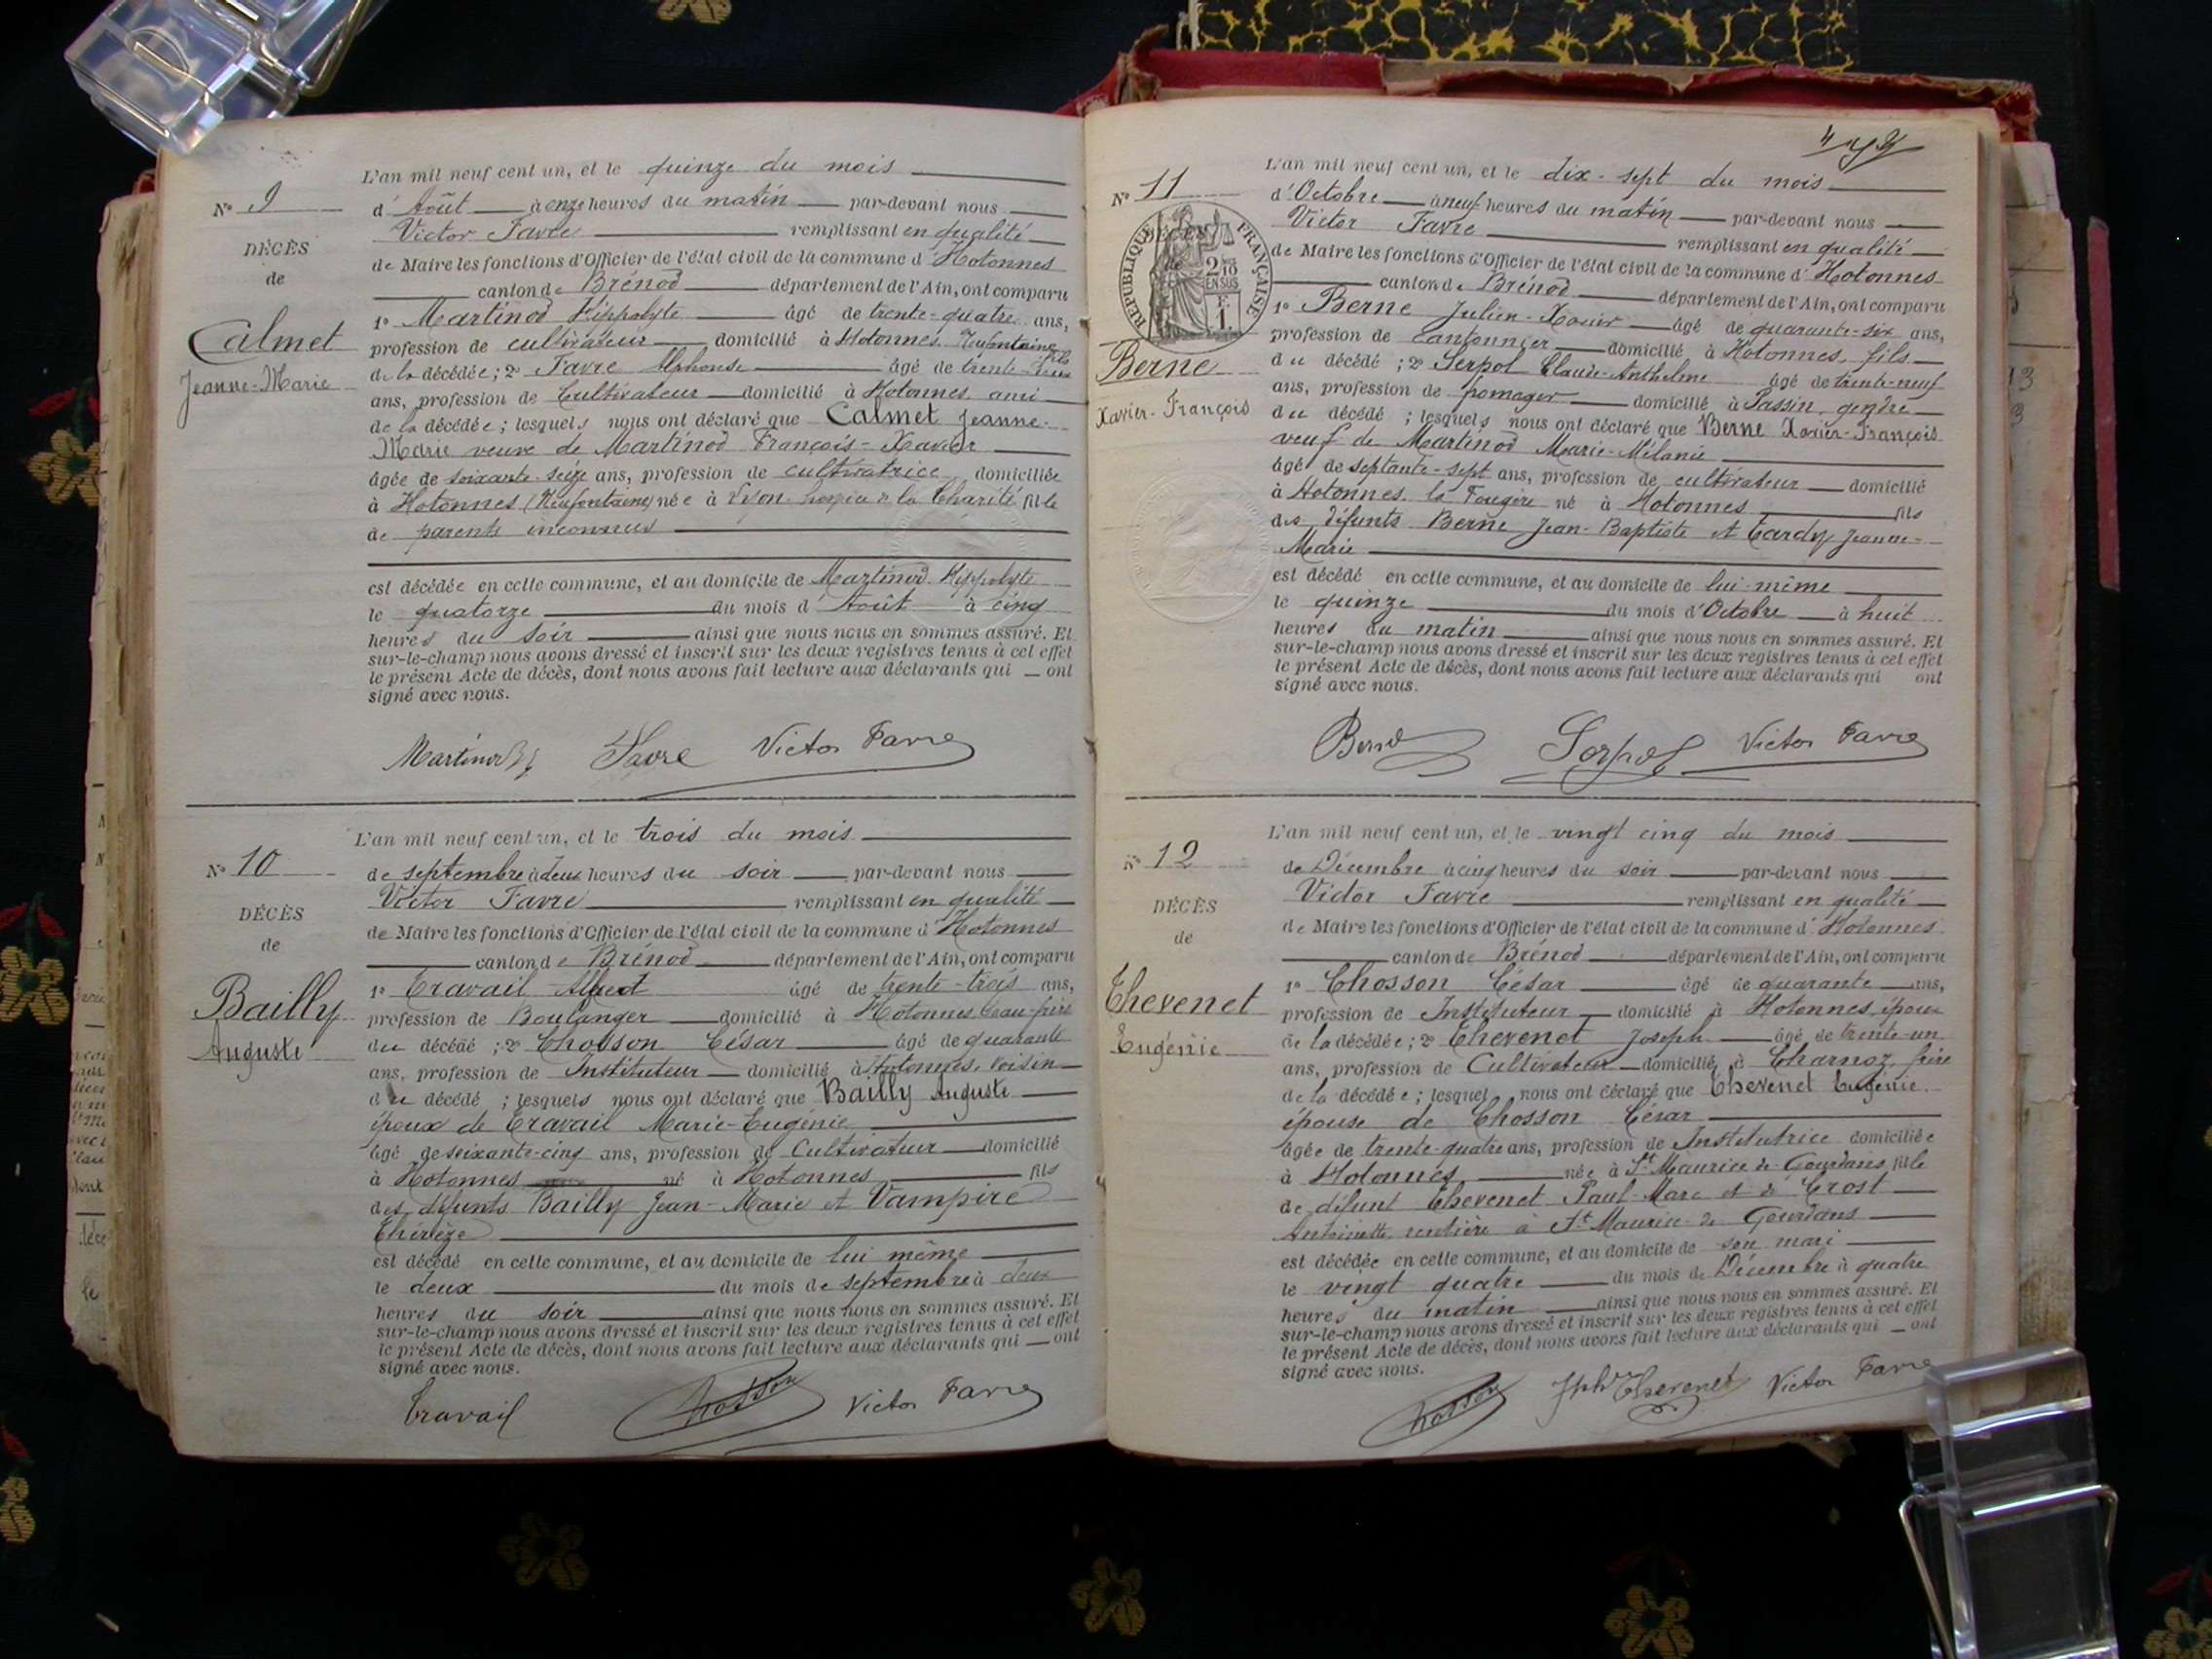 L'an mil neuf cent un, et le quinze du mois
N° 9
d'Août à onze heures du matin par-devant nous
Victor Favre remplissant en qualité
DÉCÈS
de Maire les fonctions d'Officier de l'état civil de la commune d'Hotonnes
de
canton de Brénod département de l'Ain, ont comparu
1° Martinod Hippolyte âgé de trente-quatre ans,
Calmet
profession de cultivateur domicilié à Hotonnes, Neufontaine, fils
Jeanne-Marie
de la décédée; 2° Favre Alphonse âgé de trente-
ans, profession de Cultivateur domicilié à Hotonnes, ami
de la décédée; lesquels nous ont déclaré que Calmet Jeanne-
Marie veuve de Martinod François-Xavier
âgée de soixante-seize ans, profession de cultivatrice domiciliée
à Hotonnes (Neufontaine) née à Lyon hospice de la Charité fille
de parents inconnus
est décédée en cette commune, et au domicile de Martinod Hippolyte
le quatorze du mois d'Août à cinq
heures du soir ainsi que nous nous en sommes assuré. Et
sur-le-champ nous avons dressé et inscrit sur les deux registres tenus à cet effet
le présent Acte de décès, dont nous avons fait lecture aux déclarants qui ont
signé avec nous.
Martinod H Favre Victor Favre
L'an mil neuf cent un, et le trois du mois
N° 10
de septembre à deux heures du soir par-devant nous
Victor Favre remplissant en qualité
DÉCÈS
de Maire les fonctions d'Officier de l'état civil de la commune d'Hotonnes
de
canton de Brénod département de l'Ain, ont comparu
1° Travail Albert âgé de trente-trois ans,
Bailly
profession de Boulanger domicilié à Hotonnes, beau-frère
Auguste
du décédé; 2° Chosson César âgé de quarante
ans, profession de Instituteur domicilié à Hotonnes, voisin
du décédé; lesquels nous ont déclaré que Bailly Auguste
époux de Travail Marie-Eugénie
âgé de soixante-cinq ans, profession de Cultivateur domicilié
à Hotonnes né à Hotonnes fils
des défunts Bailly Jean-Marie et Vampire
Thérèze
est décédé en cette commune, et au domicile de lui même
le deux du mois de septembre à deux
heures du soir ainsi que nous nous en sommes assuré. Et
sur-le-champ nous avons dressé et inscrit sur les deux registres tenus à cet effet
le présent Acte de décès, dont nous avons fait lecture aux déclarants qui ont
signé avec nous.
Travail Chosson Victor Favre
L'an mil neuf cent un, et le dix-sept du mois
N° 11
d'Octobre à neuf heures du matin par-devant nous
Victor Favre remplissant en qualité
DÉCÈS
de
RÉPUBLIQUE FRANÇAISE
2/10 EN SUS
F. 1.
de Maire les fonctions d'Officier de l'état civil de la commune d'Hotonnes
canton de Brénod département de l'Ain, ont comparu
1° Berne Julien-Xavier âgé de quarante-six ans,
profession de Cantonnier domicilié à Hotonnes, fils
Berne
Xavier-François
du décédé; 2° Serpol Claude-Anthelme âgé de trente-neuf
ans, profession de fromager domicilié à Passin, gendre
du décédé; lesquels nous ont déclaré que Berne Xavier-François
veuf de Martinod Marie-Mélanie
âgé de septante-sept ans, profession de cultivateur domicilié
à Hotonnes, la Fougère né à Hotonnes fils
des défunts Berne Jean-Baptiste et Tardy Jeanne-
Marie
est décédé en cette commune, et au domicile de lui-même
le quinze du mois d'Octobre à huit
heures du matin ainsi que nous nous en sommes assuré. Et
sur-le-champ nous avons dressé et inscrit sur les deux registres tenus à cet effet
le présent Acte de décès, dont nous avons fait lecture aux déclarants qui ont
signé avec nous.
Berne Serpol Victor Favre
L'an mil neuf cent un, et le vingt cinq du mois
N° 12
de Décembre à cinq heures du soir par-devant nous
Victor Favre remplissant en qualité
DÉCÈS
de Maire les fonctions d'Officier de l'état civil de la commune d'Hotonnes
de
canton de Brénod département de l'Ain, ont comparu
1° Chosson César âgé de quarante ans,
Thevenet
profession de Instituteur domicilié à Hotonnes, époux
Eugénie
de la décédée; 2° Thevenet Joseph âgé de trente-un
ans, profession de Cultivateur domicilié à Charnoz, frère
de la décédée; lesquels nous ont déclaré que Thevenet Eugénie
épouse de Chosson César
âgée de trente-quatre ans, profession de Institutrice domiciliée
à Hotonnes née à St Maurice de Gourdans fille
de défunt Thevenet Paul-Marc et de Crost
Antoinette rentière à St Maurice de Gourdans
est décédée en cette commune, et au domicile de son mari
le vingt quatre du mois de Décembre à quatre
heures du matin ainsi que nous nous en sommes assuré. Et
sur-le-champ nous avons dressé et inscrit sur les deux registres tenus à cet effet
le présent Acte de décès, dont nous avons fait lecture aux déclarants qui ont
signé avec nous.
Chosson Jph Thevenet Victor Favre